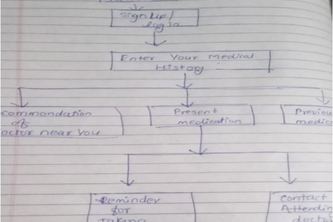 Sign up/
log in
Enter Your medical
History
commondation
of
octor near you
Present
medication
Previou
medic
Reminder
for
Taking
Contact
Attendin
docto